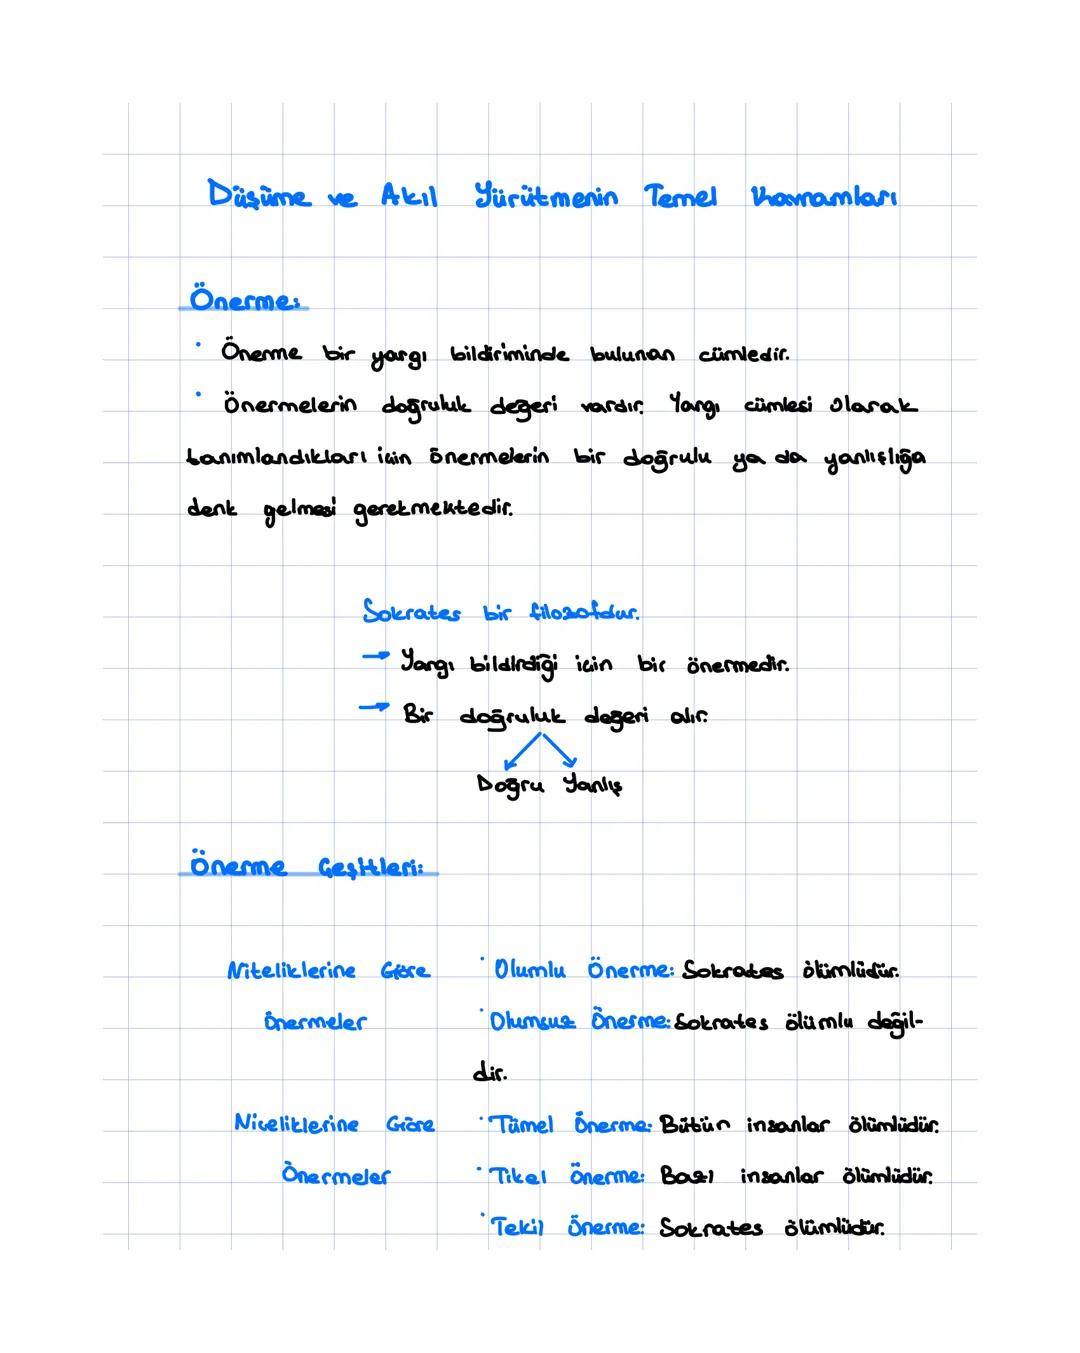 Düşüme ve Akıl Yürütmenin Temel Kavramları
Önerme:
· Önerme bir yargı bildiriminde bulunan cümledir.
· Önermelerin doğruluk değeri vardır. Yargı cümlesi olarak
tanımlandıkları için önermelerin bir doğrulu ya da yanlışlığa
denk gelmesi gerekmektedir.
Sokrates bir filozofdur.
→ Yargı bildirdiği için bir önermedir.
→ Bir doğruluk değeri alır.
Doğru Yanlış
Önerme Çeşitleri:
Niteliklerine Göre · Olumlu Önerme: Sokrates ölümlüdür.
Önermeler · Olumsuz Önerme: Sokrates ölümlu değil-
dir.
Niceliklerine Göre · Tümel Önerme: Bütün insanlar ölümlüdür.
Önermeler · Tikel Önerme: Bazı insanlar ölümlüdür.
· Tekil Önerme: Sokrates ölümlüdür.